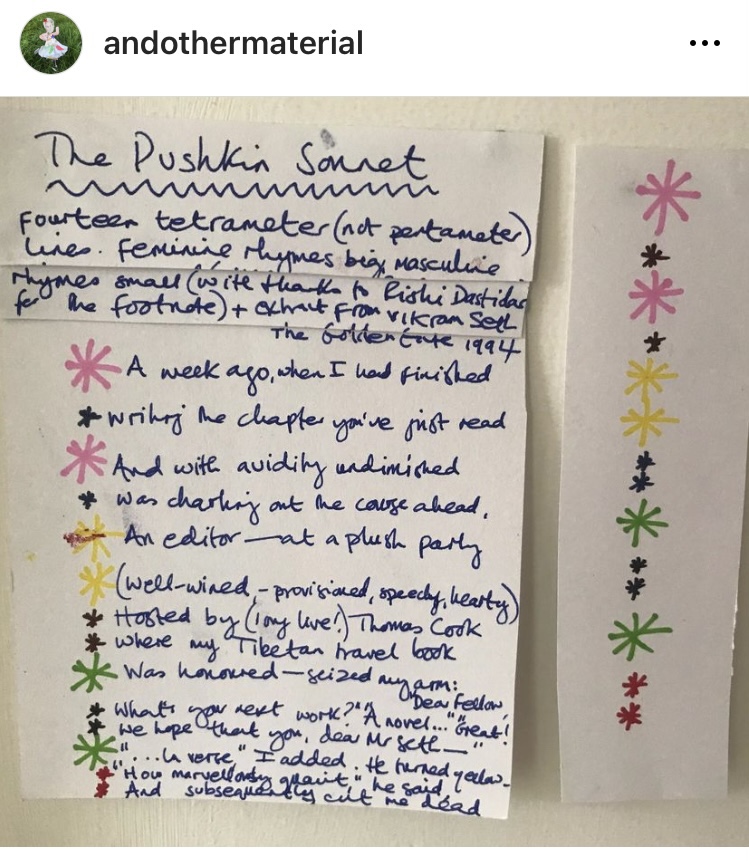 andothermaterial
The Pushkin Sonnet
Fourteen tetrameter (not pentameter)
lines. Feminine rhymes big, masculine
rhymes small (with thanks to Rishi Dastidar
for the footnote) + extract from Vikram Seth
The Golden Gate 1994
A week ago, when I had finished
writing the chapter you've just read
And with avidity undiminished
was charting out the course ahead,
An editor — at a plush party
(well-wined, -provisioned, speechy, hearty)
Hosted by (long live!) Thomas Cook
where my Tibetan travel book
Was honoured — seized my arm: "Dear Fellow,
What's your next work?" "A novel..." "Great!
We hope that you, dear Mr Seth —"
"...In verse," I added. He turned yellow.
"How marvellously quaint," he said,
And subsequently cut me dead